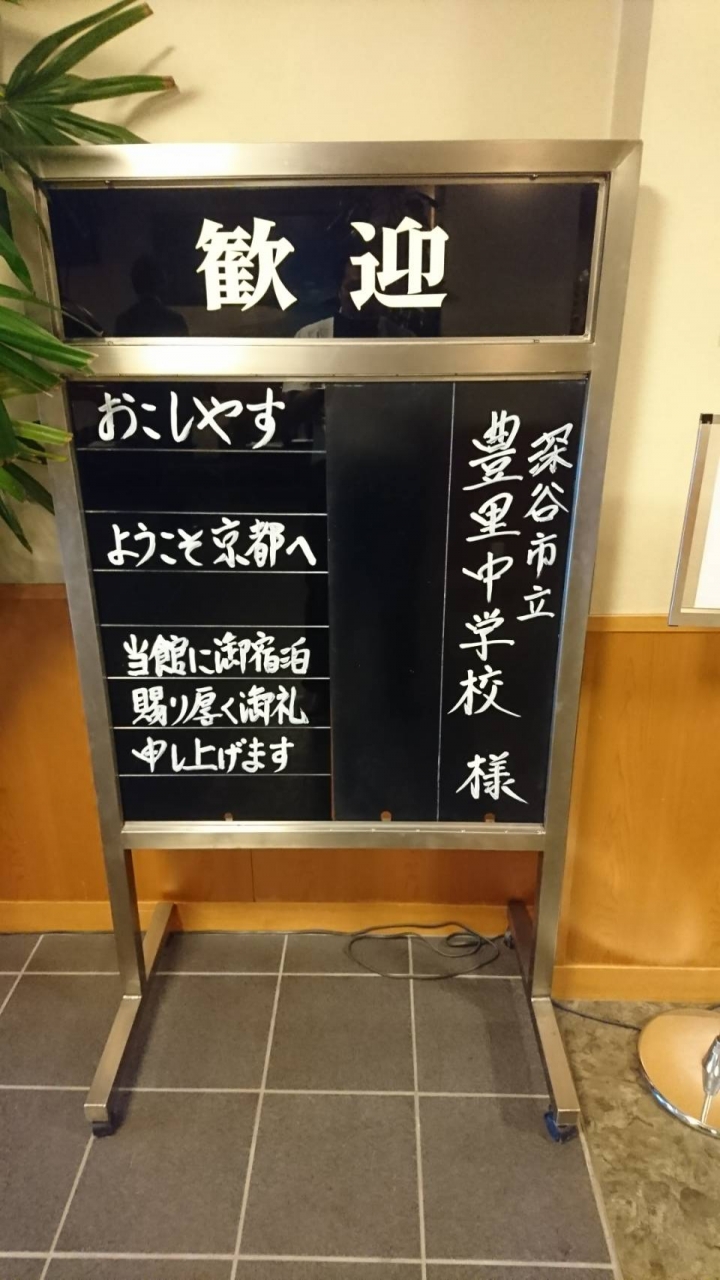 歓迎
深谷市立
豊里中学校 様
おこしやす
ようこそ京都へ
当館に御宿泊
賜り厚く御礼
申し上げます